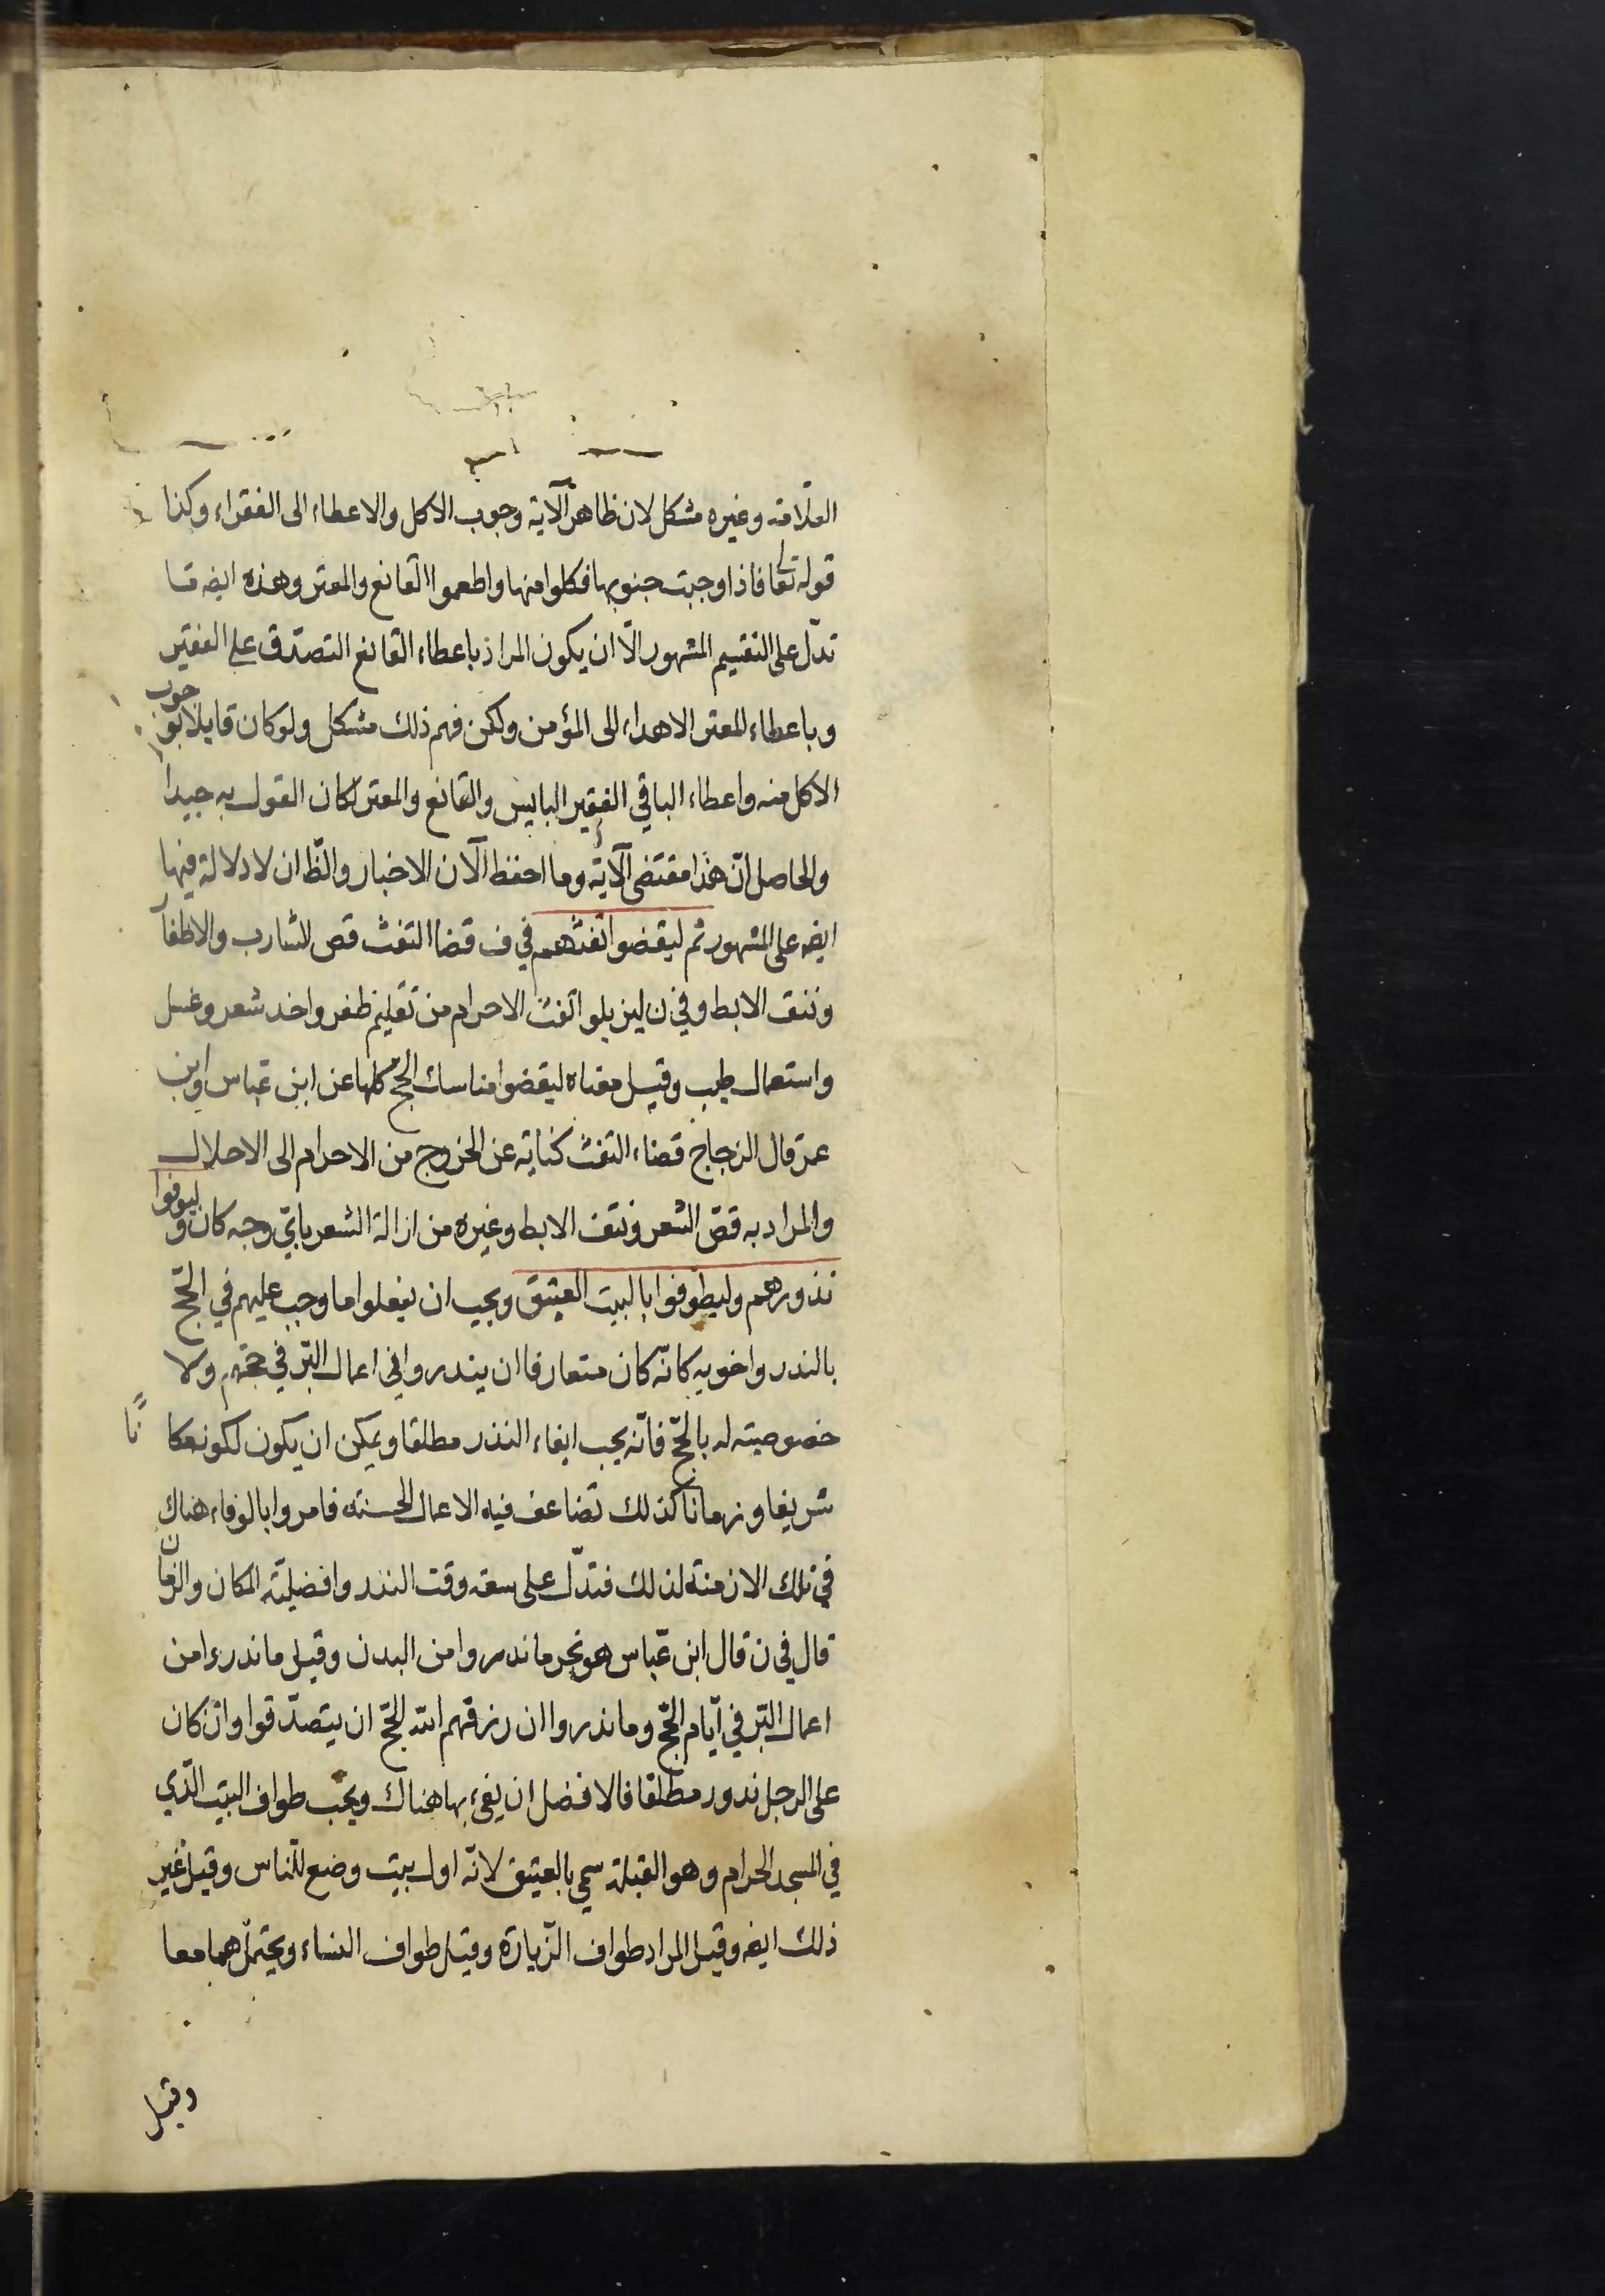 العلامة وغيره مشكل لان ظاهر الآية وجوب الاكل والاعطاء الى الفقراء وكذا
قوله تعا فاذا وجبت جنوبها فكلوا منها واطعموا القانع والمعتر وهذه ايضه تا
تدل على التقسيم المشهور الّا ان يكون المراد باعطاء القانع التصدّق على الفقير
وباعطاء المعتر الاهداء الى المؤمن ولكن فهم ذلك مشكل ولو كان قايلا بوجوب
الاكل منه واعطاء الباقي الفقير البايس والقانع والمعتر لكان القول به جيدا
والحاصل انّ هذا مقتضى الآية وما احفظ الآن الاخبار والظّ ان لا دلالة فيها
ايضه على المشهور ثم ليقضوا تفثهم في ف قضاا التفث قص الشارب والاظفار
ونتف الابط وفي ن ليزيلوا تفث الاحرام من تقليم ظفر واخد شعر وغسل
واستعمال طيب وقيل معناه ليقضوا مناسك الحج كلها عن ابن عباس وابن
عمر قال الزجاج قضاء التفث كناية عن الخروج من الاحرام الى الاحلال
والمراد به قصّ الشعر ونتف الابط وغيره من ازالة الشعر بايّ وجه كان وليوفوا
نذورهم وليطّوفوا بالبيت العتيق ويجب ان يفعلوا ما وجب عليهم في الحجّ
بالندر واخويه كانّه كان متعارفا ان يندروا في اعمال البّر في حجهم ولا
خصوصيته له بالحجّ فانّه يجب ايفاء النذر مطلقا ويمكن ان يكون لكونه مكانًا
شريفا وزمانا كذلك تضاعف فيه الاعمال الحسنة فامروا بالوفاء هناك
في تلك الازمنة لذلك فتدّل على سعة وقت النذر وافضلية المكان والزمان
قال في ن قال ابن عبّاس هو نحر ما ندروا من البدن وقيل ما ندروا من
اعمال البّر في ايّام الحجّ وما نذروا ان رزقهم الله الحجّ ان يتصدّقوا وان كان
على الرجل ندور مطلقا فالافضل ان يفى بها هناك ويجب طواف البيت الّذي
في المسجد الحرام وهو القبلة سمي بالعتيق لانّه اول بيت وضع للناس وقيل غير
ذلك ايضه وقيل المراد طواف الزّيارة وقيل طواف النساء ويحتملهما معا
وقيل